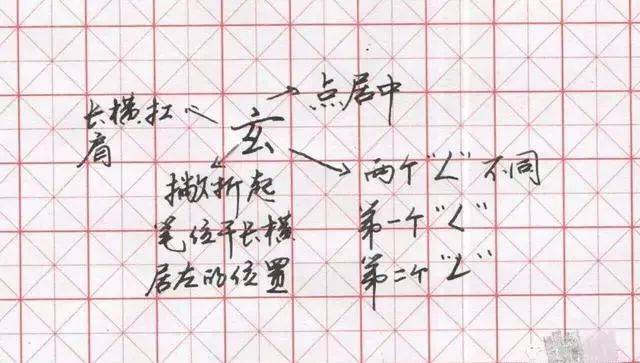 玄
点居中
长横扛
肩
撇折起
笔位于长横
居左的位置
两个"ㄥ"不同
第一个"ㄑ"
第二个"ㄥ"